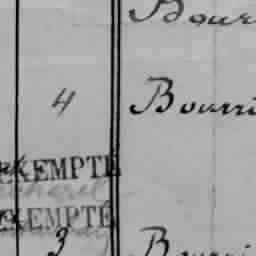 Bour
4 Bourri
EXEMPTÉ
EXEMPTÉ
3 Bourri